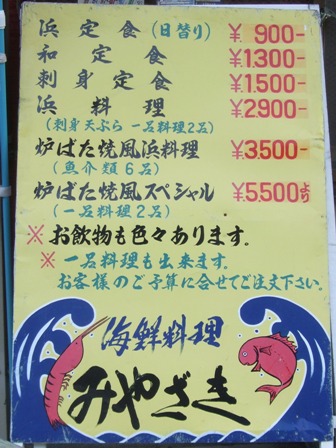 浜定食(日替り) ¥900-
和定食 ¥1.300-
刺身定食 ¥1.500-
浜料理 ¥2.900-
(刺身天ぷら 一品料理2品)
炉ばた焼風浜料理 ¥3.500-
(魚介類6品)
炉ばた焼風スペシャル ¥5.500より
(一品料理2品)
※お飲物も色々あります。
※一品料理も出来ます。
お客様のご予算に合せてご注文下さい。
海鮮料理
みやざき